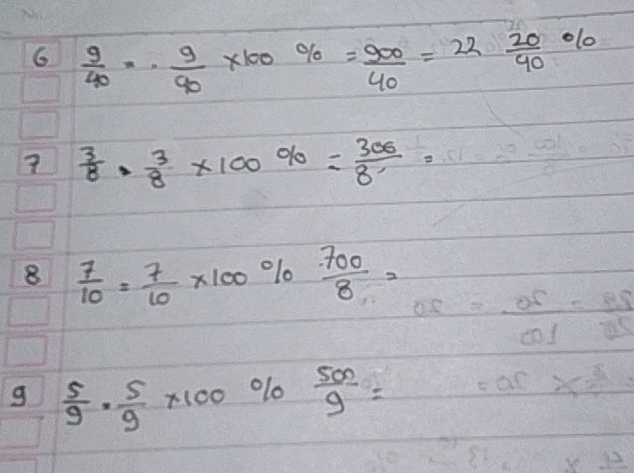 6 9/40 = 9/90 ×100 % = 900/40 = 22 20/90 %
7 3/8 = 3/8 ×100 % = 300/8 =
8 7/10 = 7/10 ×100 % 700/8 =
9 5/9 = 5/9 ×100 % 500/9 =